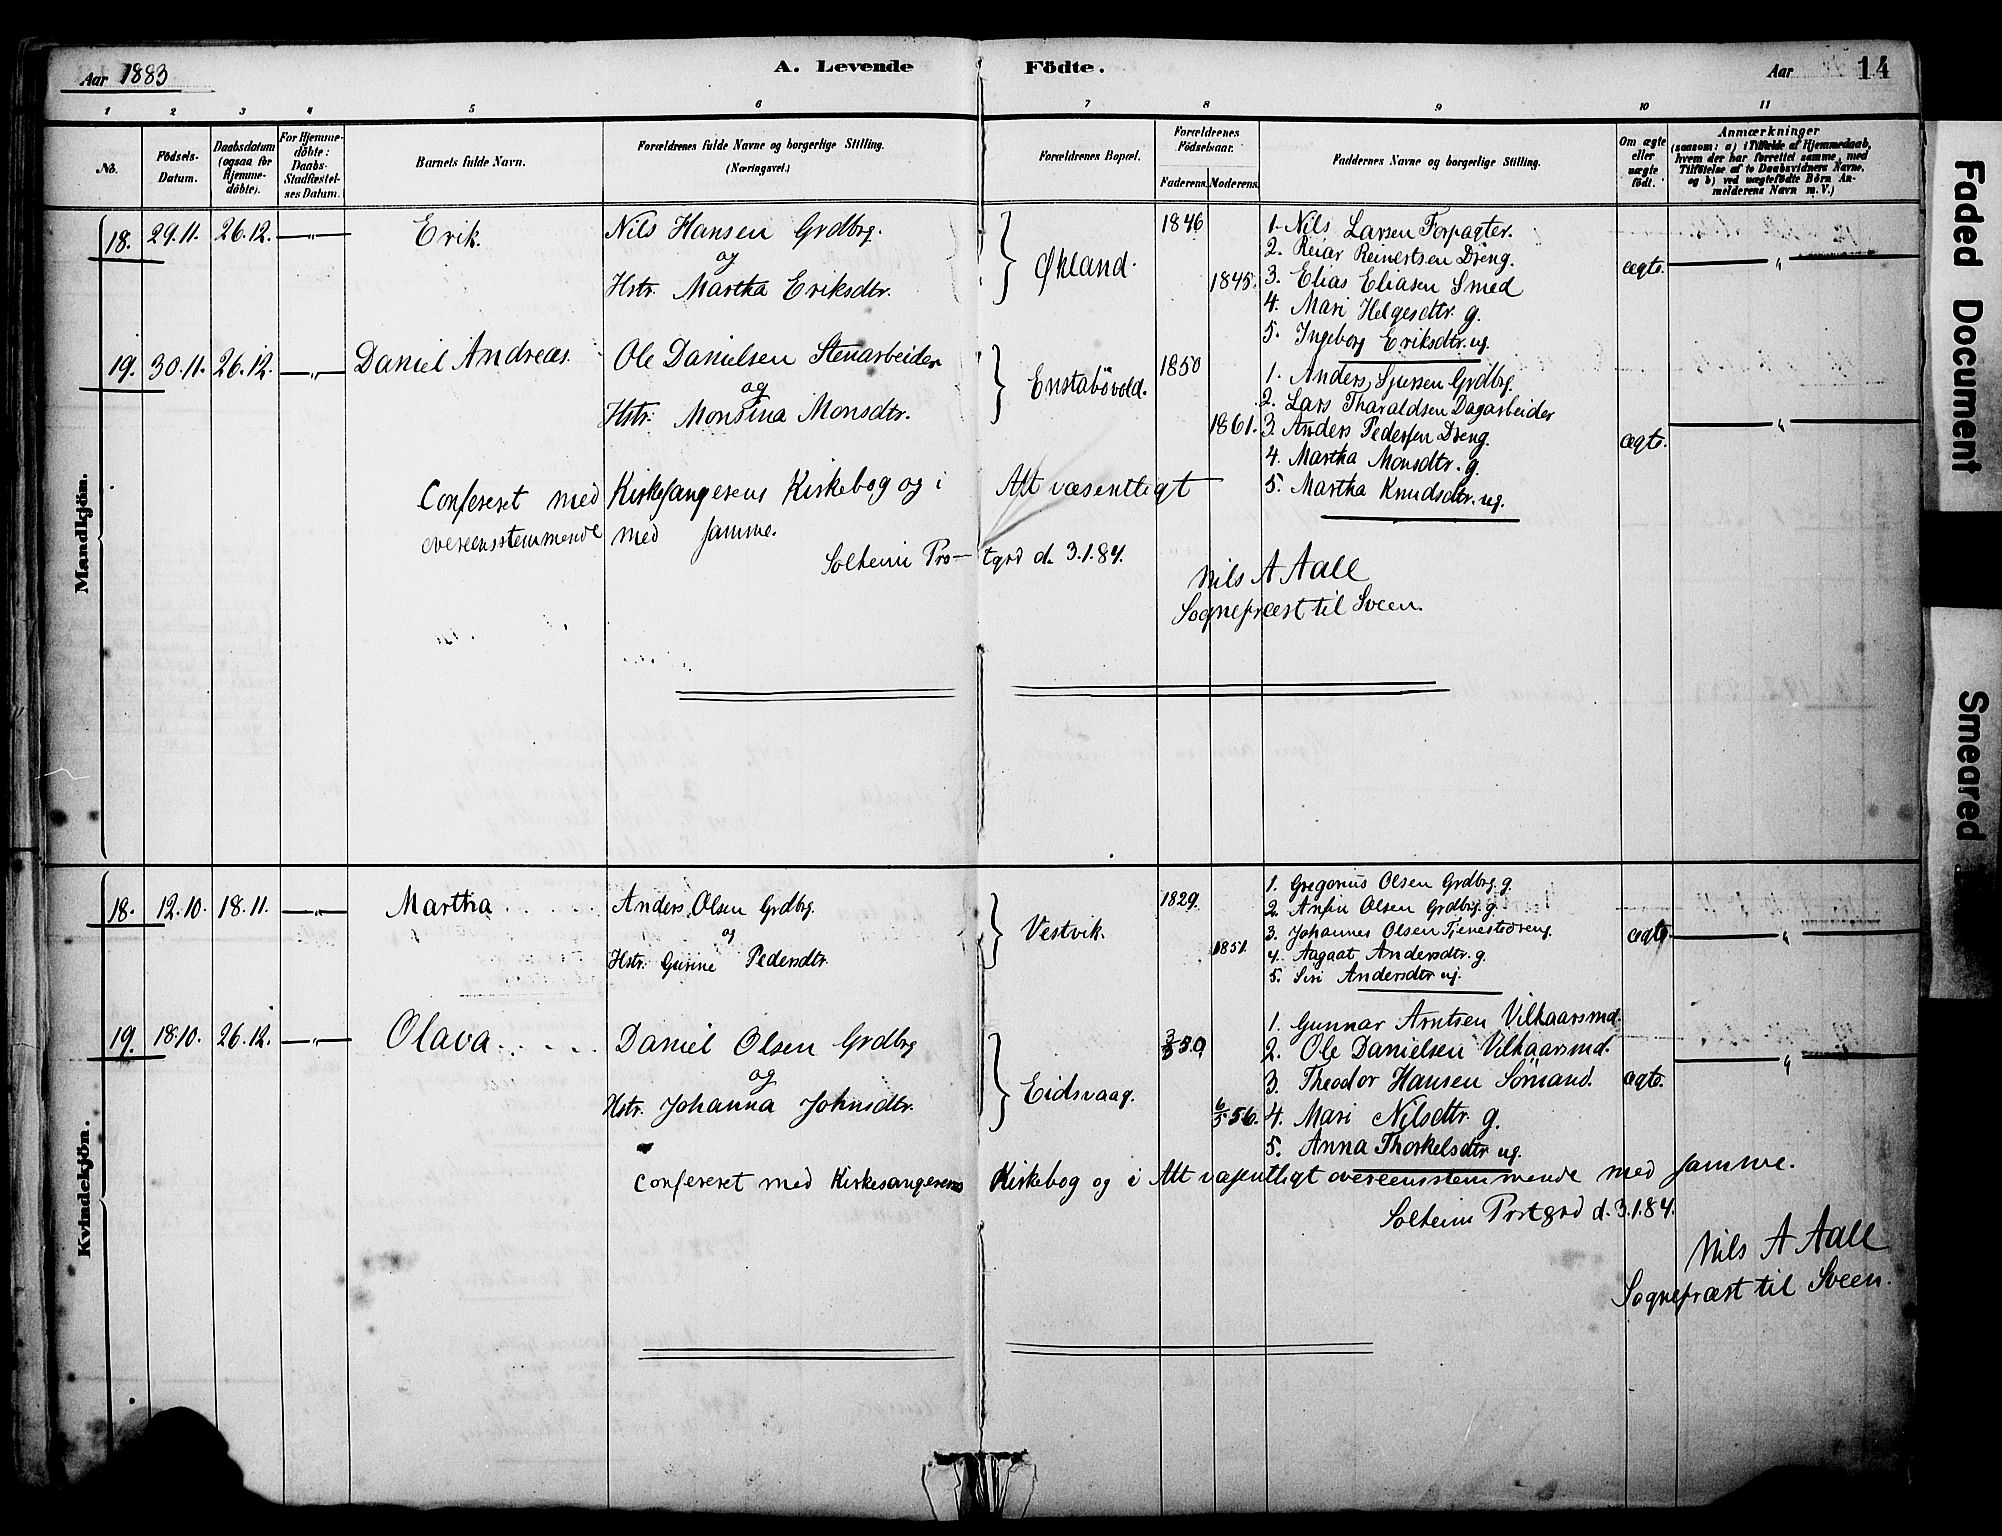 Aar 1883
A. Levende Födte.
Aar 14
1 2 3 4 5 6 7 8 9 10 11
No.
Födsels-Datum.
Daabsdatum (ogsaa for Hjemmedöbte).
For Hjemmedöbte: Daabs-Stadfæstelses Datum.
Barnets fulde Navn.
Forældrenes fulde Navne og borgerlige Stilling. (Næringsvei.)
Forældrenes Bopæl.
Forældrenes Födselsaar.
Faderens. Moderens.
Faddernes Navne og borgerlige Stilling.
Om ægte eller uægte födt.
Anmærkninger
(saasom: a) i Tilfælde af Hjemmedaab, hvem der har forrettet samme, med Tilföielse af to Daabsvidners Navne, og b) ved uægtefödte Börn Anmelderens Navn m. V.)
Mandkjön.
18. 29.11. 26.12. —„— Erik. Nils Hansen Grdbrg.
og
Hstr. Martha Eriksdtr.
Økland.
1846
1845.
1. Nils Larsen Forpagter.
2. Reiar Reinertsen Dreng.
3. Elias Eliasen Smed
4. Mari Helgesdtr. g.
5. Ingeborg Eriksdtr. ug.
ægte. —„—
19. 30.11. 26.12. —„— Daniel Andreas. Ole Danielsen Stenarbeider
og
Hstr. Monsina Monsdtr.
Enstabövold.
1850
1861.
1. Anders Sjursen Grdbrg.
2. Lars Tharaldsen Dagarbeider
3. Anders Pedersen Dreng.
4. Martha Monsdtr. g.
5. Martha Knudsdtr. ug.
ægte. —„—
Confereret med Kirkesangerens Kirkebog og i Alt væsentligt
overeensstemmende med samme.
Solheim Prstgrd d. 3.1.84.
Nils A Aall
Sognepræst til Sveen.
Kvindekjön.
18. 12.10. 18.11. —„— Martha Anders Olsen Grdbrg.
og
Hstr. Gurine Pedersdtr.
Vestvik.
1829.
1851.
1. Gregorius Olsen Grdbrg. g.
2. Anfin Olsen Grdbrg. g.
3. Johannes Olsen Tjenestedreng.
4. Aagaat Andersdtr. g.
5. Siri Andersdtr ug.
ægte —„—
19. 18.10. 26.12. —„— Olava Daniel Olsen Grdbrg
og
Hstr. Johanna Johnsdtr.
Eidsvaag.
50
6/5 56.
1. Gunnar Arntsen Vilkaarsmd.
2. Ole Danielsen Vilkaarsmd.
3. Theodor Hansen Sömand.
4. Mari Nilsdtr. g.
5. Anna Thorkelsdtr ug.
ægte. —„—
Confereret med Kirkesangerens Kirkebog og i Alt væsentligt overeensstemmende med samme.
Solheim Prstgrd d. 3.1.84.
Nils A Aall
Sognepræst til Sveen.
Faded Document
Smeared